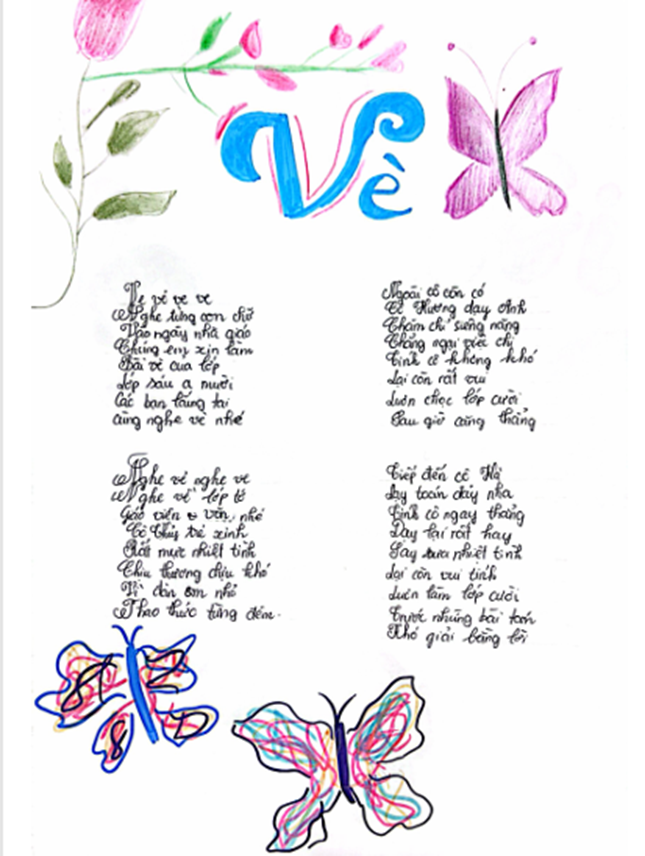 Vè
Ve vẻ ve ve
Nghe từng con chữ
Vào ngày nhà giáo
Chúng em xin làm
Bài vè của lớp
Lớp sáu a mười
Các bạn lắng tai
Cùng nghe vè nhé
Nghe vẻ nghe ve
Nghe vè lớp tớ
Giáo viên văn nhé
Cô Thủy trẻ xinh
Rất mực nhiệt tình
Chịu thương chịu khó
Vì đàn em nhỏ
Thao thức từng đêm.
Ngoài cô còn có
Cô Hương dạy Anh
Chăm chỉ siêng năng
Chẳng ngại việc chi
Tính cô không khó
Lại còn rất vui
Luôn chọc lớp cười
Sau giờ căng thẳng
Tiếp đến cô Hà
Dạy toán đấy nha
Tính cô ngay thẳng
Dạy lại rất hay
Say sưa nhiệt tình
Lại còn vui tính
Luôn làm lớp cười
Trước những bài toán
Khó giải bằng lời